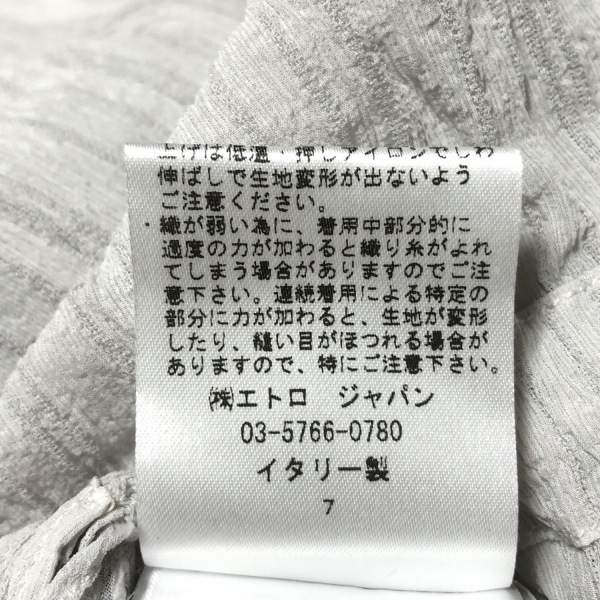 上げは低温・押しアイロンでしわ
伸ばしで生地変形が出ないよう
ご注意ください。
・織が弱い為に、着用中部分的に
過度の力が加わると織り糸がよれ
てしまう場合がありますのでご注
意下さい。連続着用による特定の
部分に力が加わると、生地が変形
したり、縫い目がほつれる場合が
ありますので、特にご注意下さい。
㈱エトロ ジャパン
03-5766-0780
イタリー製
7